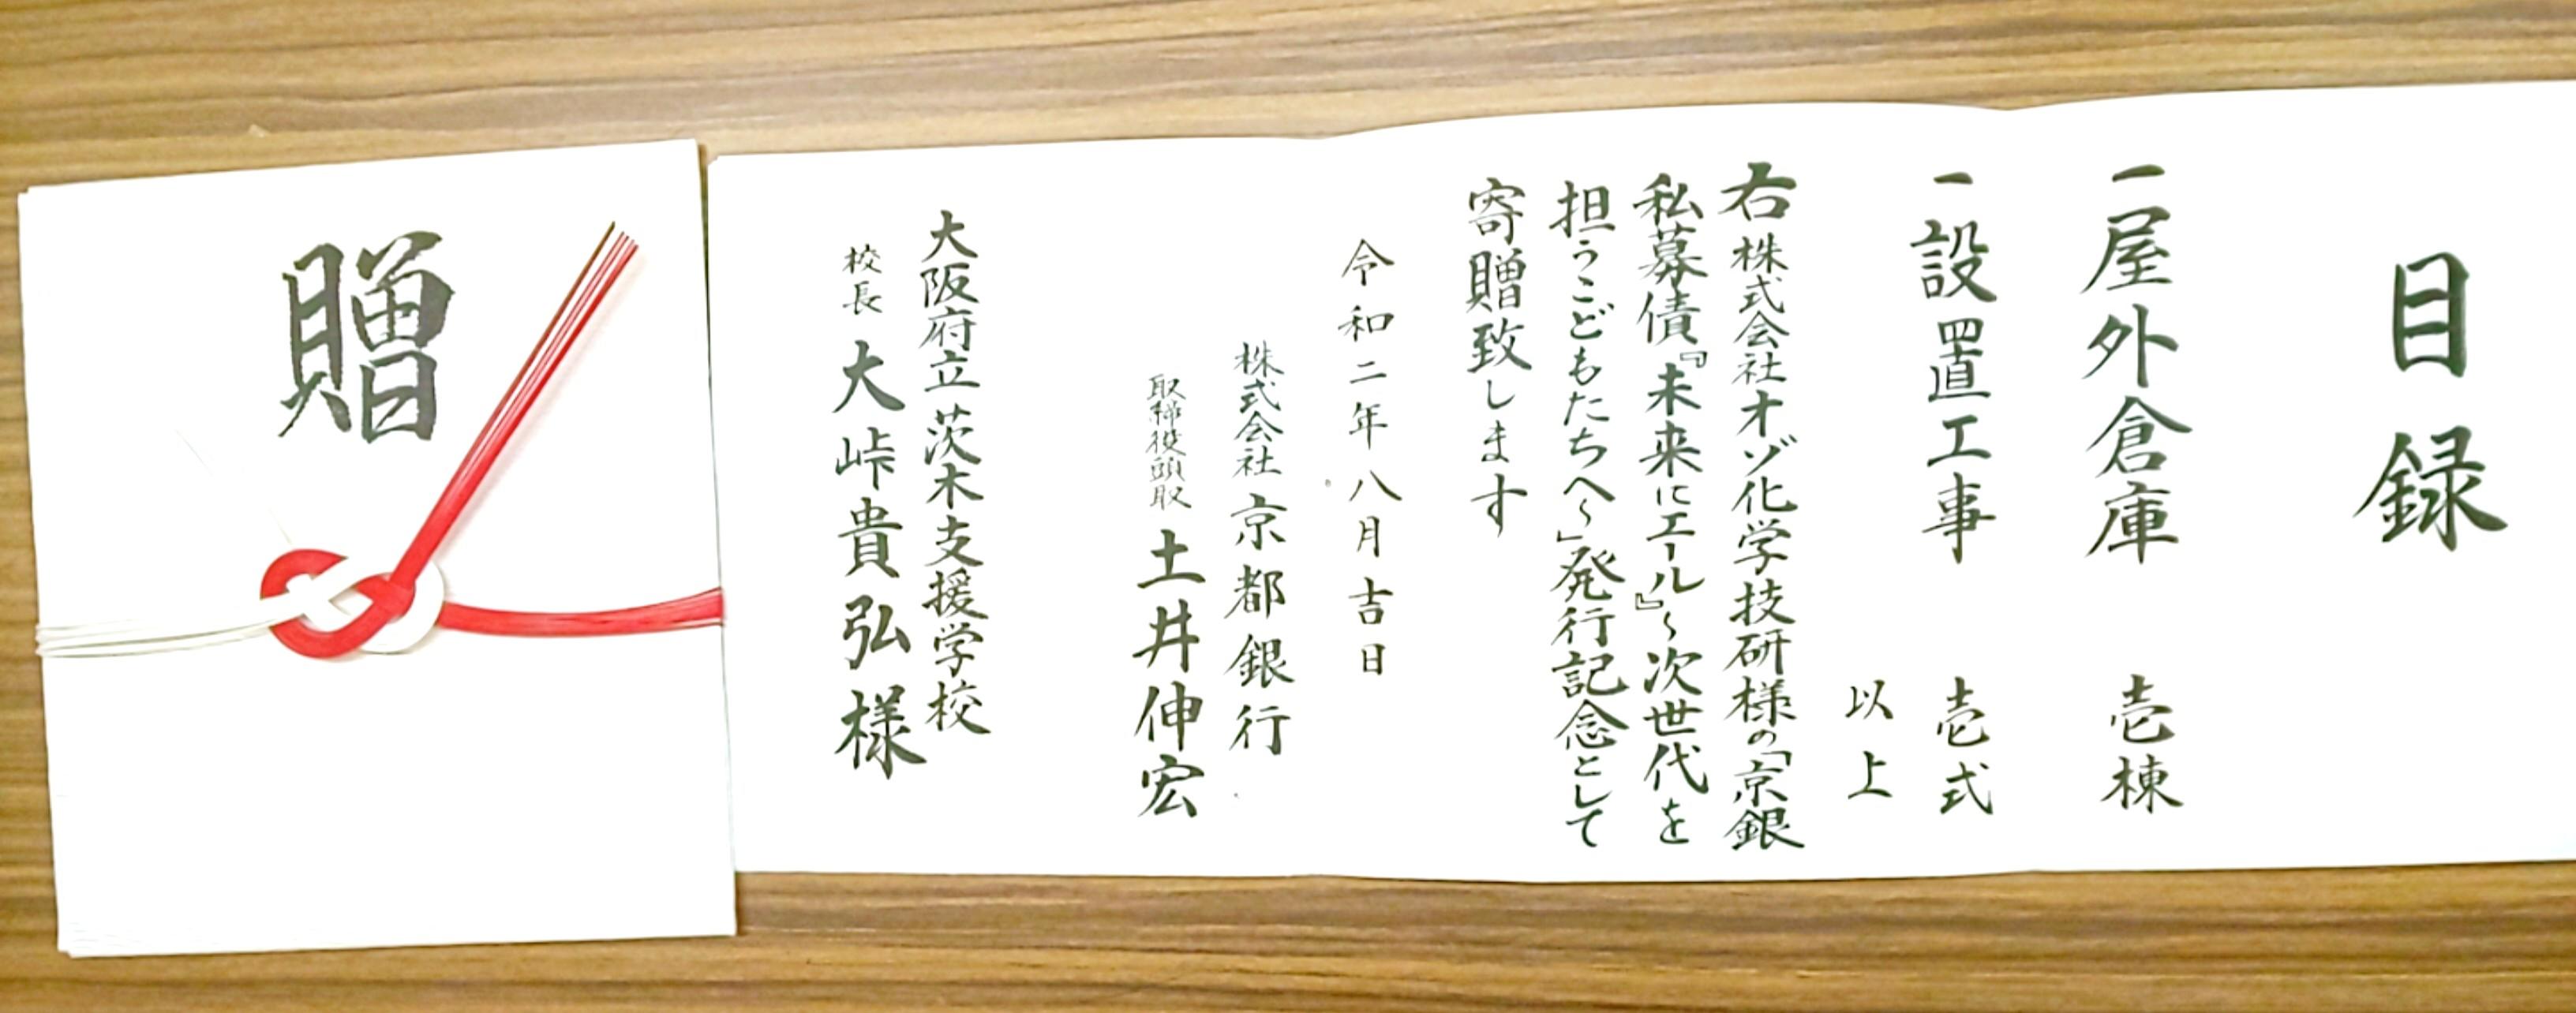 目録
一屋外倉庫 壱棟
一設置工事 壱式
以上
右株式会社オゾ化学技研様の「京銀
私募債『未来にエール』～次世代を
担うこどもたちへ～」発行記念として
寄贈致します
令和二年八月吉日
株式会社京都銀行
取締役頭取 土井伸宏
大阪府立茨木支援学校
校長 大峠貴弘様
贈